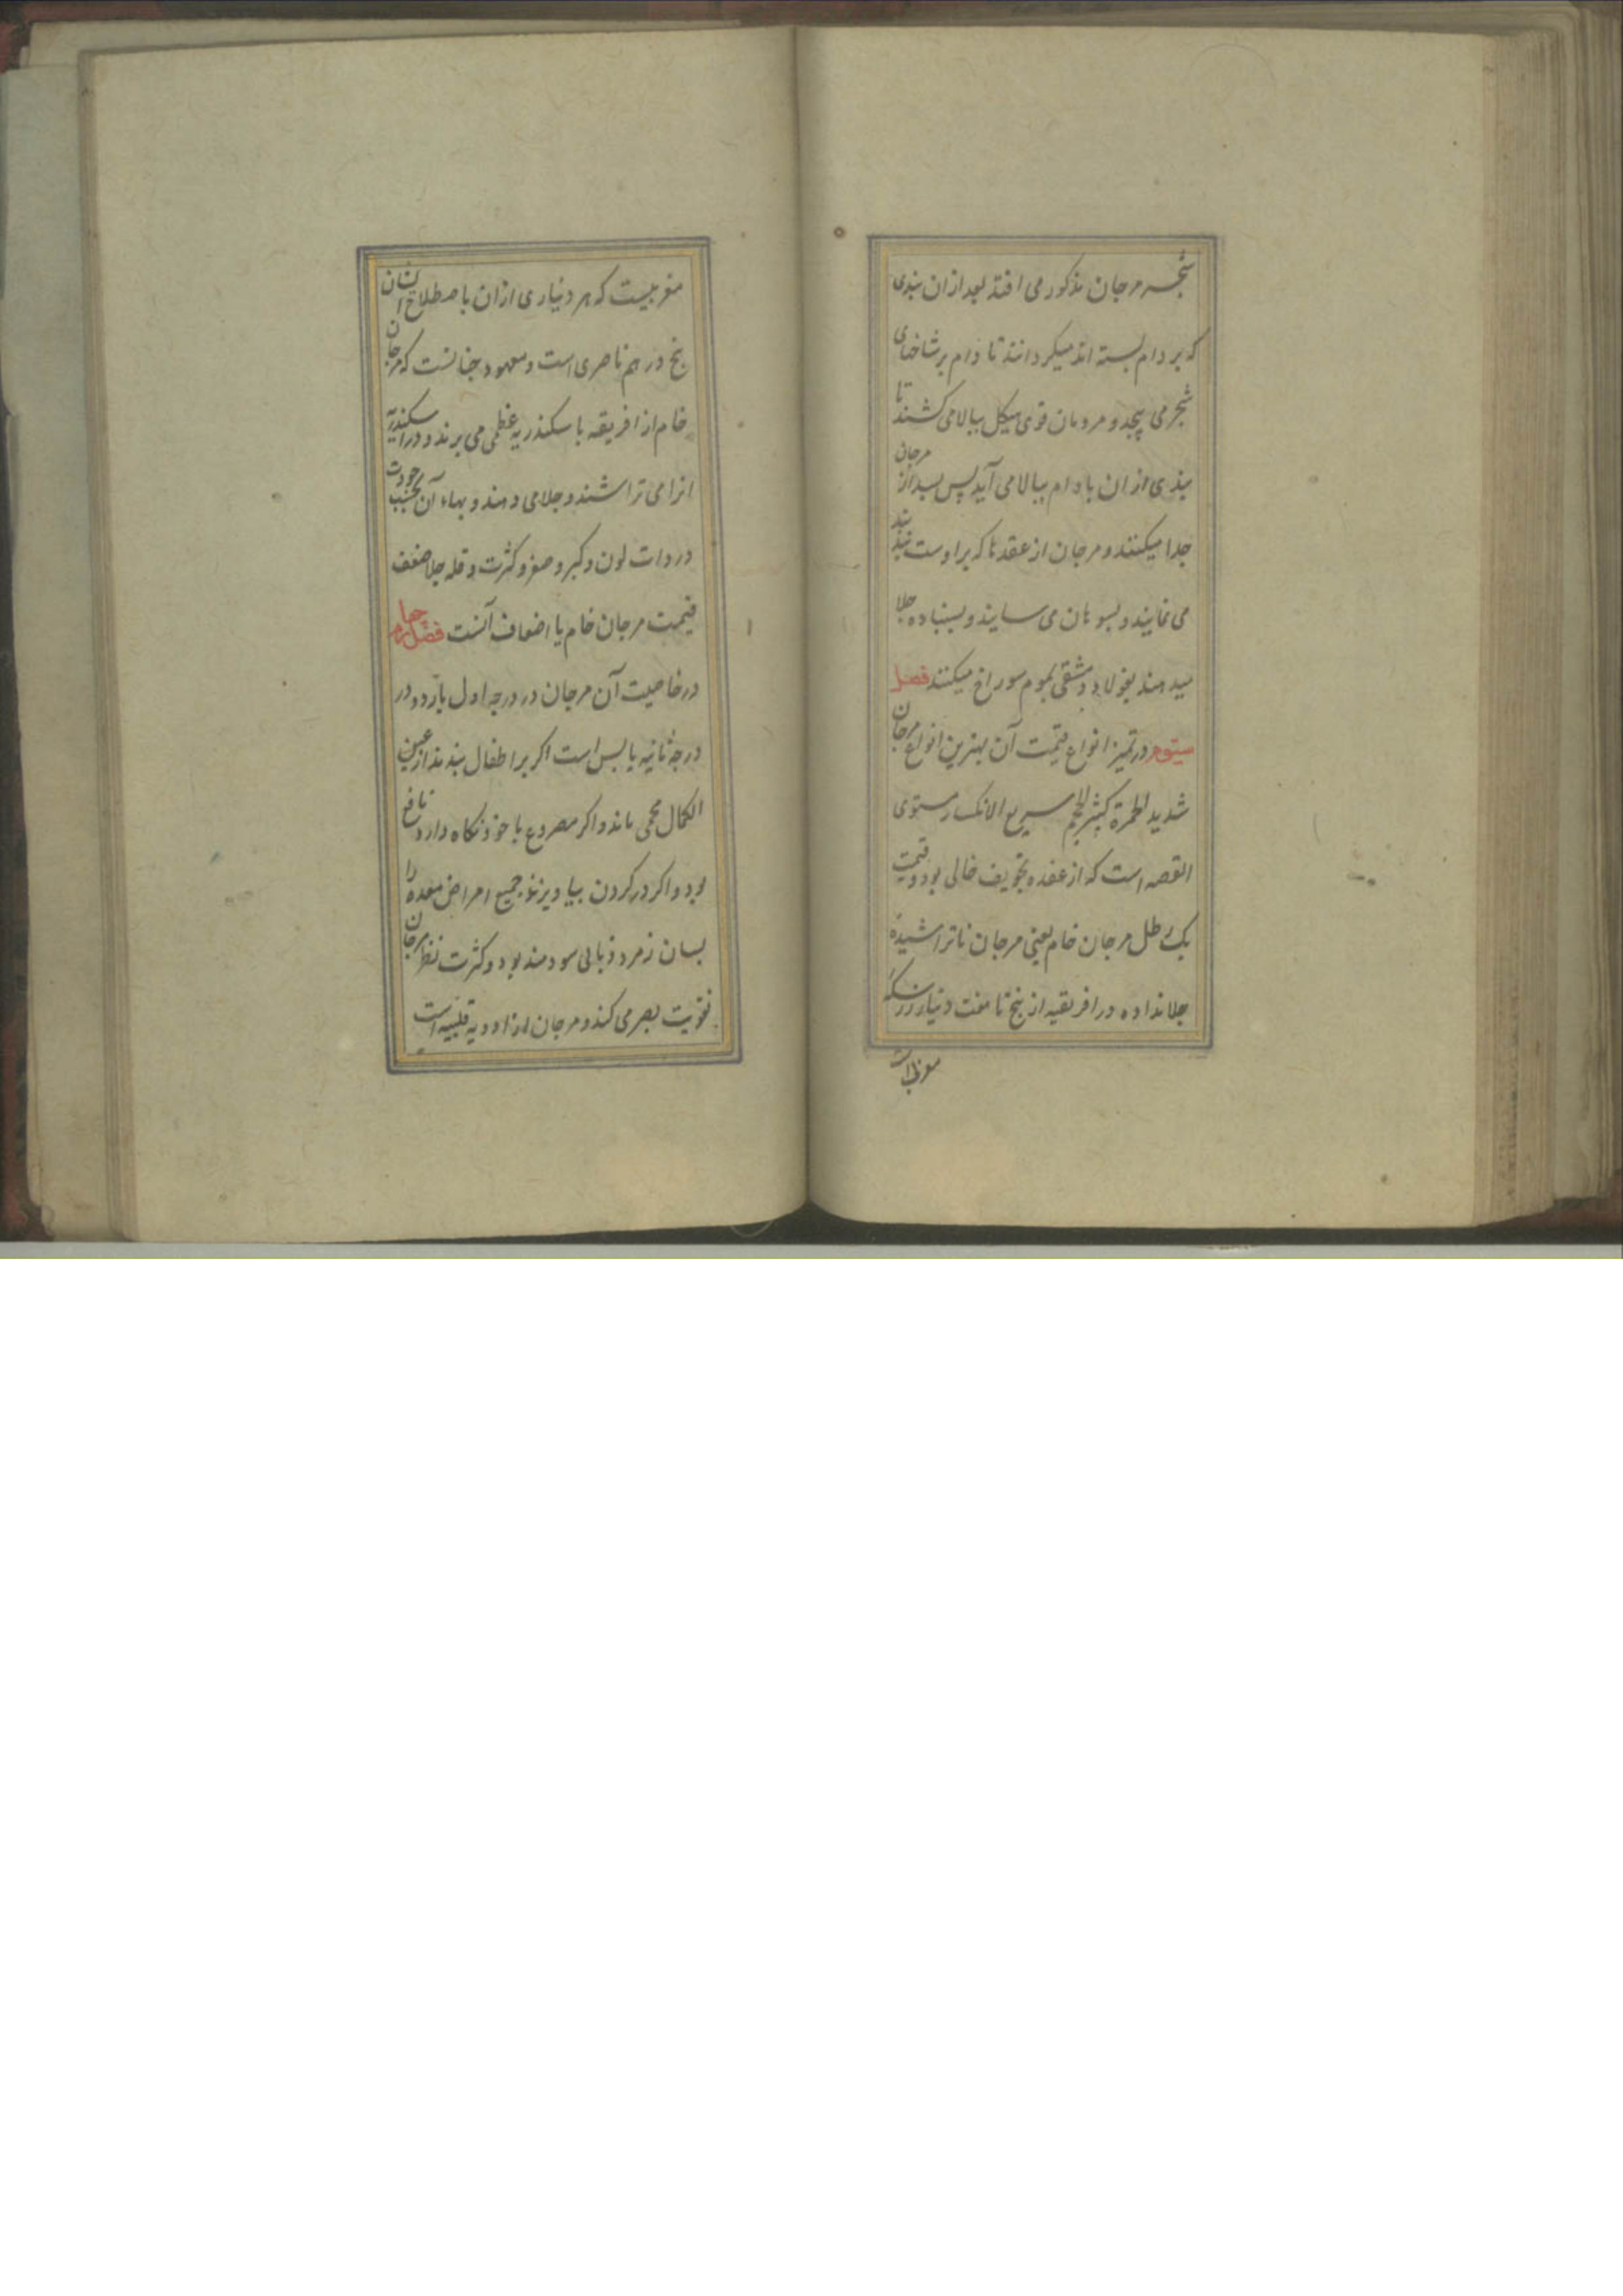 شجر مرجان مذکور می افتد بعد ازان بندی
که بر دام بسته اند میکردانند تا دام بر شاخهای
شجر می پیچد و مردمان قوی هیکل ببالا می کشند تا
بندی ازان با دام ببالا می آید پس بعد از مرجان
جدا میکنند و مرجان از عقدها که براوست بند بند
می نمایند و بسوهان می سایند و بسنباده جلا
میدهند بفولاد دمشقی بموم سوراخ میکنند فصل
سیوم در تمیز انواع قیمت آن بهترین انواع مرجان
شدید الحمرة کثیر الحجم سریع الانکسار مستوی
القصبه است که از عقده تجویف خالی بود و قیمت
یک رطل مرجان خام یعنی مرجان ناتراشیده
جلا نداده در افریقیه از پنج تا هفت دینار زر سکه
مغربیست که هر دیناری ازان باصطلاح ایشان
پنج درهم ناصری است و معهود چنانست که مرجان
خام از افریقه باسکندریه عظمی می برند و در اسکندریه
انرا می تراشند و جلا می دهند و بهاء آن بحسب جودت
و ردات لون و کبر و صغر و کثرت و قله جلا ضعف
قیمت مرجان خام یا اضعاف آنست فصل چهارم
در خاصیت آن مرجان در درجه اول بارد و در
درجه ثانیه یابس است اکر بر اطفال بندند از عین
الکمال محمی ماند و اکر مصروع با خود نکاه دارد نافع
بود و اکر در کردن بیاویزند جمیع امراض معده را
بسان زمرد ذبابی سودمند بود و کثرت نظر مرجان
تقویت بصر می کند و مرجان از ادویه قلبیه است